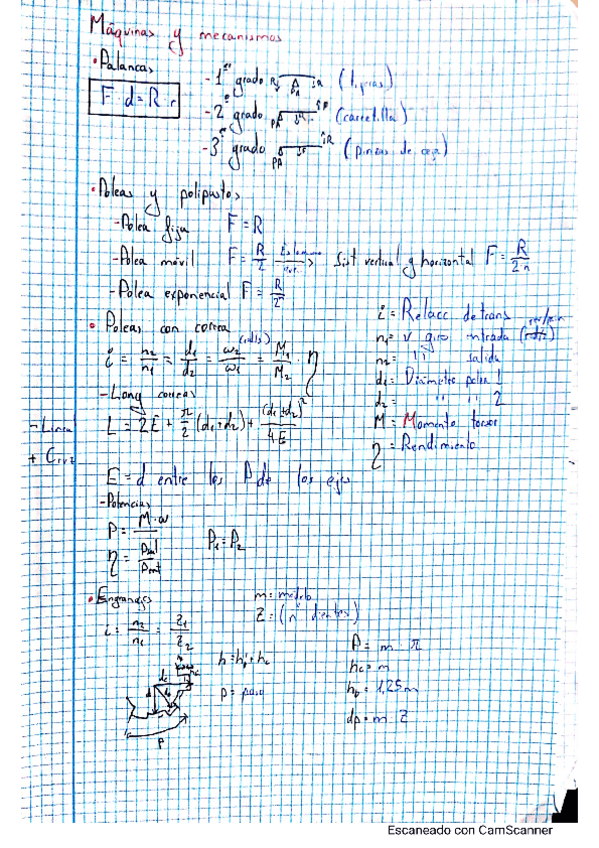 Máquinas y mecanismos
• Palancas
F · d = R · r
- 1er grado R PA R (tijeras)
- 2º grado PA R F (carretilla)
- 3er grado PA F R (pinzas de ceja)
• Poleas y polipastos
- Polea fija F = R
- Polea móvil F = R/2 Sist vertical y horizontal F = R/2·n
- Polea exponencial F = R/2ⁿ
• Poleas con correa
i = n₂/n₁ = d₁/d₂ = ω₂/ω₁ (rad/s) = M₁/M₂ · η
i = Relacc de trans
n₁ = v giro entrada
n₂ = '' '' salida
d₁ = Diámetro polea 1
d₂ = '' '' 2
M = Momento torsor
η = Rendimiento
- Long correas
- Lineal
+ Cruz
L = 2E + π/2 (d₁+d₂) + (d₁+d₂)²/4E
E = d entre los P de los ejes
- Potencias
P = M · ω
P₁ = P₂
η = Psal/Pent
• Engranajes
i = n₂/n₁ = Z₁/Z₂
m = módulo
Z = (nº dientes)
h = hp + hc
p = paso
P = m · π
hc = m
hp = 1,25m
dp = m · Z
P
Escaneado con CamScanner